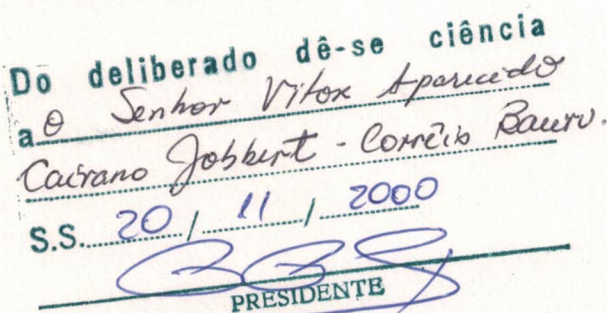 Do deliberado dê-se ciência
a O Senhor Vitor Aparecido
Cairano Jobbert - Corrêio Bauru.
S.S. 20 / 11 / 2000
PRESIDENTE